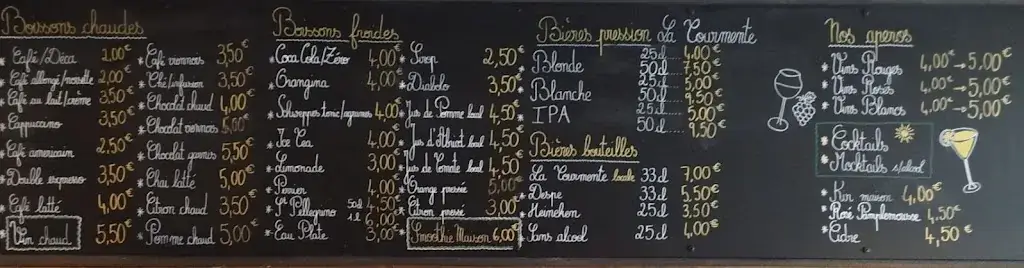 Boissons chaudes
* Café/Déca 2,00€
* Café allongé/noisette 2,00€
* Café au lait/crème 3,50€
* Cappuccino 3,50€
* Café americain 2,50€
* Double expresso 3,50€
* Café latté 4,00€
* Vin chaud 5,50€
* Café viennois 3,50€
* Thé/infusion 3,50€
* Chocolat chaud 4,00€
* Chocolat viennois 5,00€
* Chocolat guimauves 5,50€
* Chai latté 5,00€
* Citron chaud 3,50€
* Pomme chaud 5,00€
Boissons froides
* Coca Cola/Zero 4,00€
* Orangina 4,00€
* Schweppes tonic/agrumes 4,00€
* Ice Tea 4,00€
* Limonade 3,00€
* Perrier 4,00€
* St Pellegrino 50cl 4,00€
1L 6,00€
* Eau Plate 3,00€
* Sirop 2,50€
* Diabolo 3,50€
* Jus de Pomme local 4,50€
* Jus d'Abricot local 4,50€
* Jus de Tomate local 4,50€
* Orange pressée 5,00€
* Citron pressé 3,00€
Smoothie Maison 6,00€
Bières pression La Tourmente
Blonde 25cl 4,00€
50cl
Blanche
50cl
IPA 25cl 5,00€
50cl 9,50€
Bières bouteilles
* La Tourmente locale 33cl 7,00€
* Despe 33cl 5,50€
* Heineken 25cl 3,50€
* Sans alcool 25cl 4,00€
Nos aperos
* Vins Rouges 4,00€ → 5,00€
* Vins Rosés 4,00€ → 5,00€
* Vins Blancs 4,00€ → 5,00€
* Cocktails
* Mocktails s/alcool
* Kir maison 4,00€
* Rosé Pamplemousse 4,50€
* Cidre 4,50€